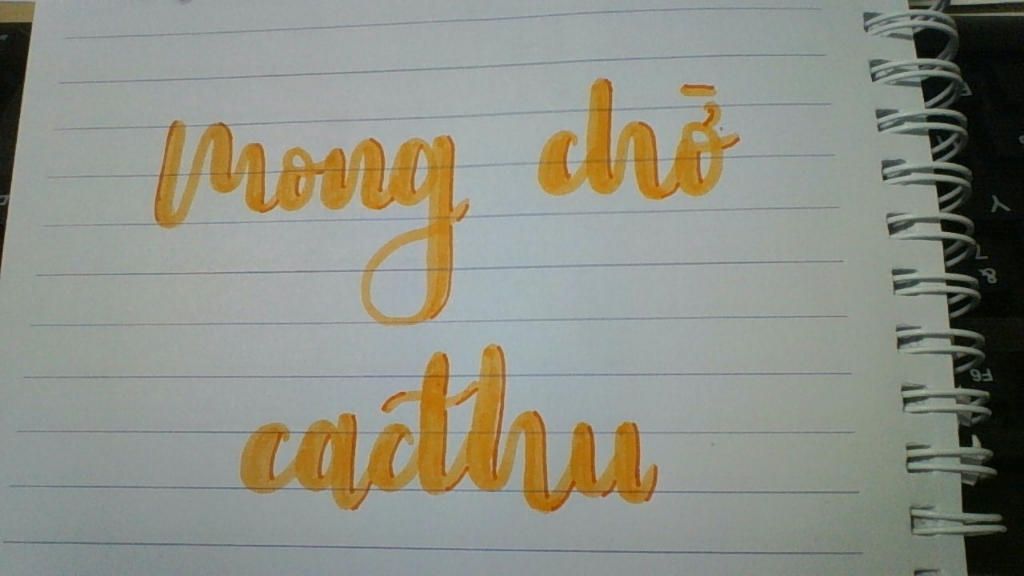 Mong chở
cacthu
F6